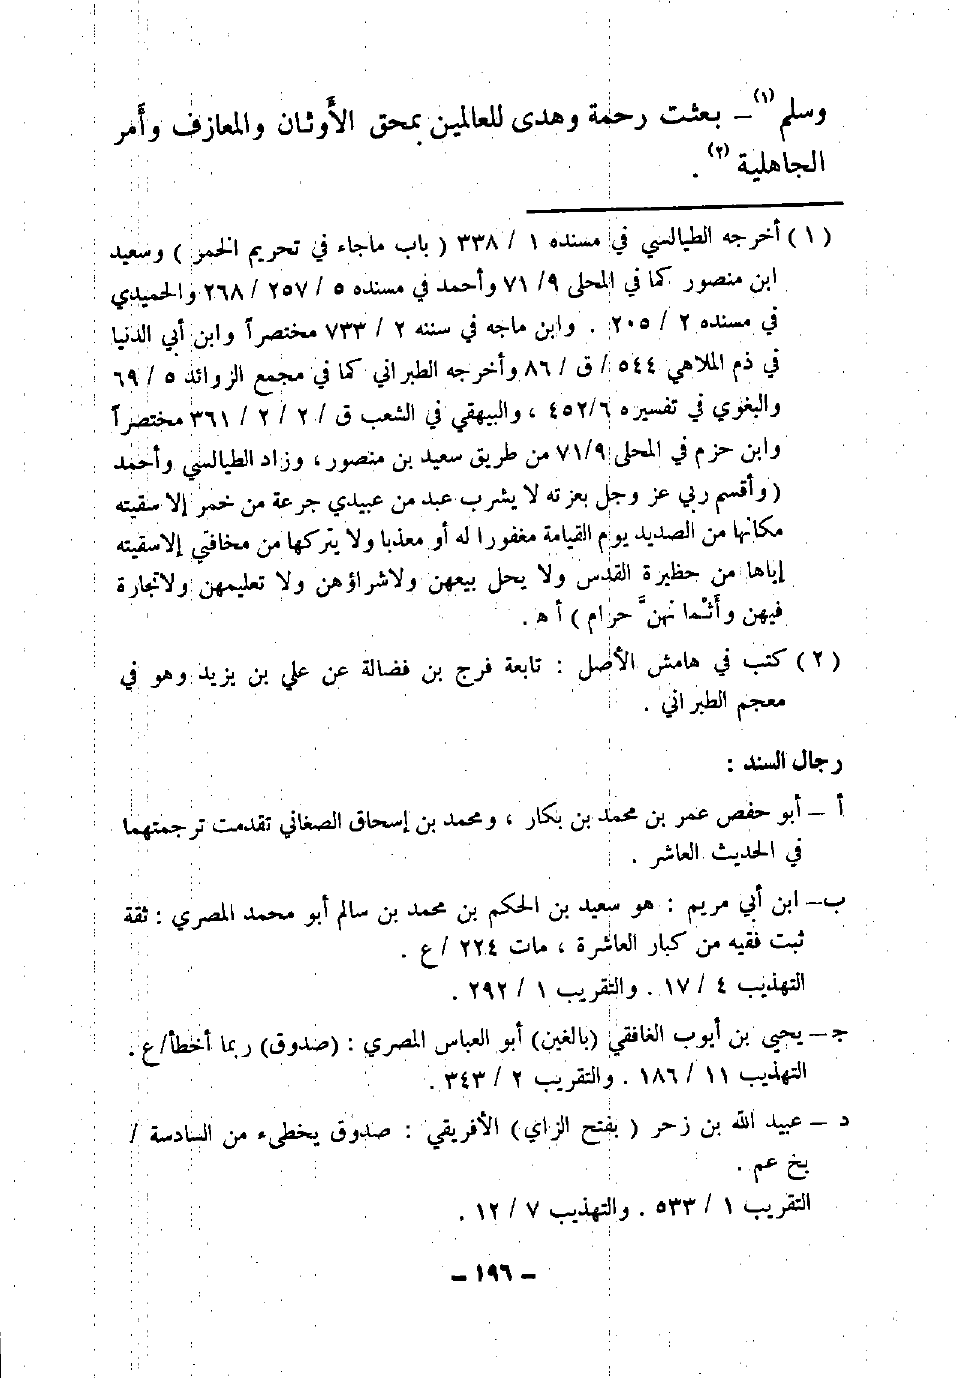 وسلم (١) ـ بعثت رحمة وهدى للعالمين بمحق الأوثان والمعازف وأمر
الجاهلية (٢) .
( ١ ) أخرجه الطيالسي في مسنده ١ / ٣٣٨ ( باب ماجاء في تحريم الخمر ) وسعيد
ابن منصور كما في المحلى ٩/ ٧١ وأحمد في مسنده ٥ / ٢٥٧ / ٢٦٨ والحميدي
في مسنده ٢ / ٢٠٥ . وابن ماجه في سننه ٢ / ٧٣٣ مختصراً وابن أبي الدنيا
في ذم الملاهي ٥٤٤ / ق / ٨٦ وأخرجه الطبراني كما في مجمع الزوائد ٥ / ٦٩
والبغوي في تفسيره ٤٥٢/٦ ، والبيهقي في الشعب ق / ٢ / ٢ / ٣٦١ مختصراً
وابن حزم في المحلى ٧١/٩ من طريق سعيد بن منصور ، وزاد الطيالسي وأحمد
( وأقسم ربي عز وجل بعزته لا يشرب عبد من عبيدي جرعة من خمر إلا سقيته
مكانها من الصديد يوم القيامة مغفورا له أو معذبا ولا يتركها من مخافتي إلاسقيته
إياها من حظيرة القدس ولا يحل بيعهن ولاشراؤهن ولا تعليمهن ولاتجارة
فيهن وأثمانهنَّ حرام ) أ ه .
( ٢ ) كتب في هامش الأصل : تابعة فرج بن فضالة عن علي بن يزيد وهو في
معجم الطبراني .
رجال السند :
أ ـ أبو حفص عمر بن محمد بن بكار ، ومحمد بن إسحاق الصغاني تقدمت ترجمتهما
في الحديث العاشر .
ب ـ ابن أبي مريم : هو سعيد بن الحكم بن محمد بن سالم أبو محمد المصري : ثقة
ثبت فقيه من كبار العاشرة ، مات ٢٢٤ /ع .
التهذيب ٤ / ١٧ . والتقريب ١ / ٢٩٢ .
جـ ـ يحيي بن أيوب الغافقي (بالغين) أبو العباس المصري : (صدوق) ربما أخطأ/ع .
التهذيب ١١ / ١٨٦ . والتقريب ٢ / ٣٤٣ .
د ـ عبيد الله بن زحر ( بفتح الزاي) الأفريقي : صدوق يخطىء من السادسة /
بخ عم .
التقريب ١ / ٥٣٣ . والتهذيب ٧ / ١٢ .
ـ ١٩٦ ـ